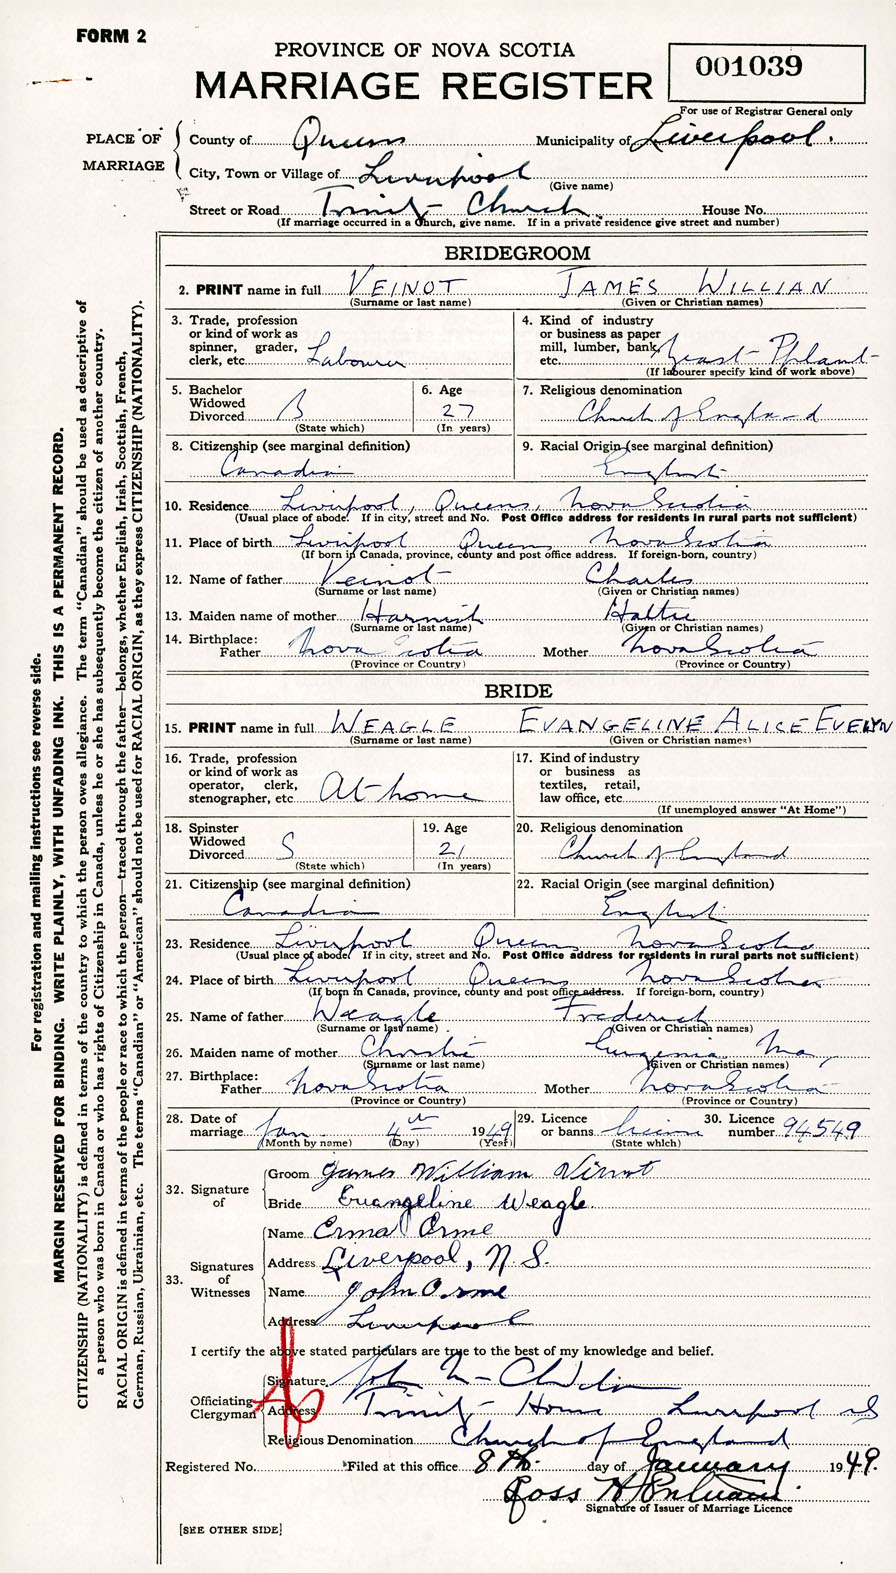 FORM 2
PROVINCE OF NOVA SCOTIA
MARRIAGE REGISTER
001039
For use of Registrar General only
PLACE OF MARRIAGE
County of Queens Municipality of Liverpool.
City, Town or Village of Liverpool
(Give name)
Street or Road Trinity Church House No.
(If marriage occurred in a Church, give name. If in a private residence give street and number)
BRIDEGROOM
2. PRINT name in full VEINOT JAMES WILLIAN
(Surname or last name) (Given or Christian names)
3. Trade, profession or kind of work as spinner, grader, clerk, etc. Labourer
4. Kind of industry or business as paper mill, lumber, bank, etc. Yeast Phlant
(If labourer specify kind of work above)
5. Bachelor Widowed Divorced B
(State which)
6. Age 27
(In years)
7. Religious denomination
Church of England
8. Citizenship (see marginal definition)
Canadian
9. Racial Origin (see marginal definition)
English
10. Residence Liverpool, Queens, Nova Scotia
(Usual place of abode. If in city, street and No. Post Office address for residents in rural parts not sufficient)
11. Place of birth Liverpool Queens Nova Scotia
(If born in Canada, province, county and post office address. If foreign-born, country)
12. Name of father Veinot Charles
(Surname or last name) (Given or Christian names)
13. Maiden name of mother Harnish Hattie
(Surname or last name) (Given or Christian names)
14. Birthplace:
Father Nova Scotia Mother Nova Scotia
(Province or Country) (Province or Country)
BRIDE
15. PRINT name in full WEAGLE EVANGELINE ALICE EVELYN
(Surname or last name) (Given or Christian names)
16. Trade, profession or kind of work as operator, clerk, stenographer, etc. At home
17. Kind of industry or business as textiles, retail, law office, etc.
(If unemployed answer "At Home")
18. Spinster Widowed Divorced S
(State which)
19. Age 21
(In years)
20. Religious denomination
Church of England
21. Citizenship (see marginal definition)
Canadian
22. Racial Origin (see marginal definition)
English
23. Residence Liverpool Queens Nova Scotia
(Usual place of abode. If in city, street and No. Post Office address for residents in rural parts not sufficient)
24. Place of birth Liverpool Queens Nova Scotia
(If born in Canada, province, county and post office address. If foreign-born, country)
25. Name of father Weagle Frederick
(Surname or last name) (Given or Christian names)
26. Maiden name of mother Christie Eugenia Ma
(Surname or last name) (Given or Christian names)
27. Birthplace:
Father Nova Scotia Mother Nova Scotia
(Province or Country) (Province or Country)
28. Date of marriage Jan 4th 1949
(Month by name) (Day) (Year)
29. Licence or banns
(State which)
30. Licence number 94549
32. Signature of
Groom James William Veinot
Bride Evangeline Weagle.
33. Signatures of Witnesses
Name Erma Orme
Address Liverpool, N.S.
Name John Orme
Address Liverpool
I certify the above stated particulars are true to the best of my knowledge and belief.
Officiating Clergyman
Signature John
Address Trinity House Liverpool NS
Religious Denomination Church of England
Registered No. Filed at this office 8th. day of January 1949.
Ross H
Signature of Issuer of Marriage Licence
[SEE OTHER SIDE]
For registration and mailing instructions see reverse side.
MARGIN RESERVED FOR BINDING. WRITE PLAINLY, WITH UNFADING INK. THIS IS A PERMANENT RECORD.
CITIZENSHIP (NATIONALITY) is defined in terms of the country to which the person owes allegiance. The term "Canadian" should be used as descriptive of
a person who was born in Canada or who has rights of Citizenship in Canada, unless he or she has subsequently become the citizen of another country.
RACIAL ORIGIN is defined in terms of the people or race to which the person—traced through the father—belongs, whether English, Irish, Scottish, French,
German, Russian, Ukrainian, etc. The terms "Canadian" or "American" should not be used for RACIAL ORIGIN, as they express CITIZENSHIP (NATIONALITY).